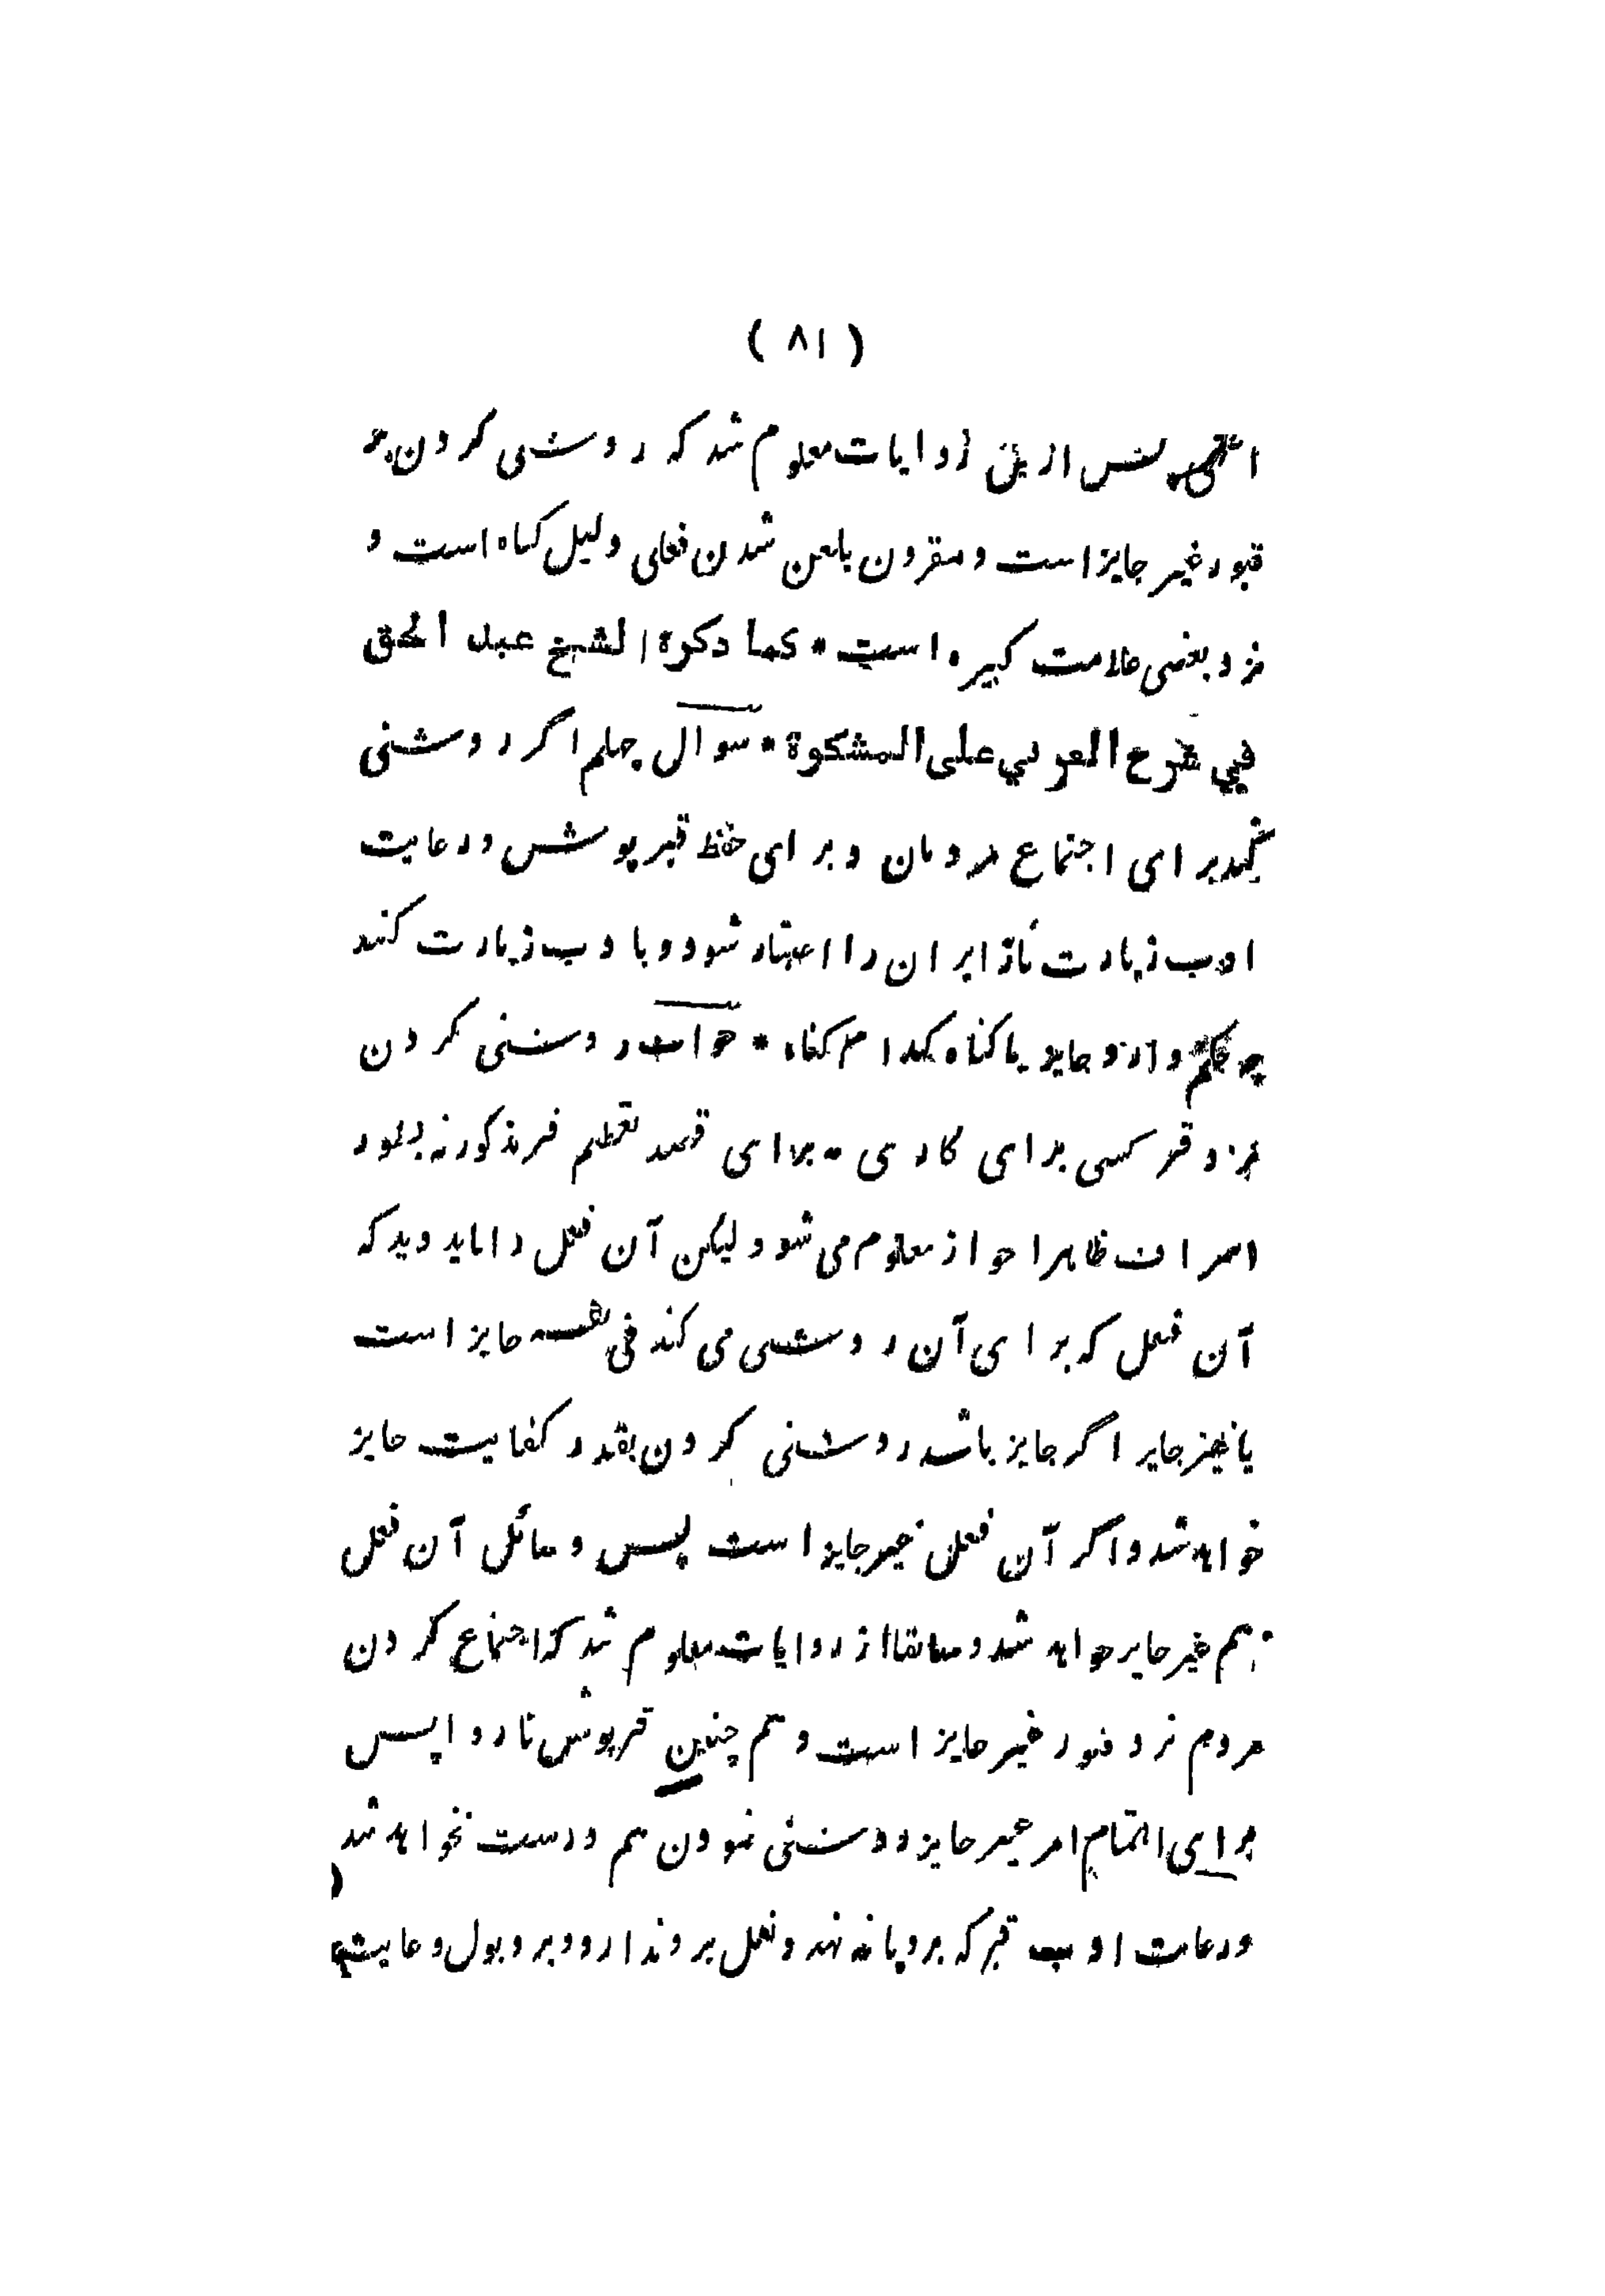 ( ٨١ )
انتهی پس ازین روایات معلوم شد که روشنی کردن بر
قبور غیر جایز است و مقرون بلعن شدن فعلی دلیل گناه است و
نزد بعضی علامت کبیره است * کما ذکره الشیخ عبد الحق
في شرح العربي على المشكوة * سوال چهلم اگر روشنی
کند برای اجتماع مردمان و برای حفظ قبرپوش و رعایت
ادب زیارت تا زایران را اعتبار شود و با ادب زیارت کنند
چه حکم دارد جایز یا گناه کدام گناه * جواب روشنی کردن
نزد قبر کسی برای کاری نه برای قصد تعظیم قبر مذکور نه بطور
اسراف ظاهرا جواز معلوم می شود لیکن آن فعل را باید دید که
آن فعل که برای آن روشنی می کند فی نفسه جایز است
یا غیر جایز اگر جایز باشد روشنی کردن بقدر کفایت جایز
خواهد شد و اگر آن فعل غیر جایز است پس وسائل آن فعل
هم غیر جایز خواهد شد و سابقا از روایات معلوم شد که اجتماع کردن
مردم نزد قبور غیر جایز است و هم چنین قبرپوش ناروا پس
برای اهتمام امر غیر جایز روشنی نمودن هم درست نخواهد شد
و رعایت ادب قبر که برو پا نه نهد و نعل برو ندارد و برو بول و غایت